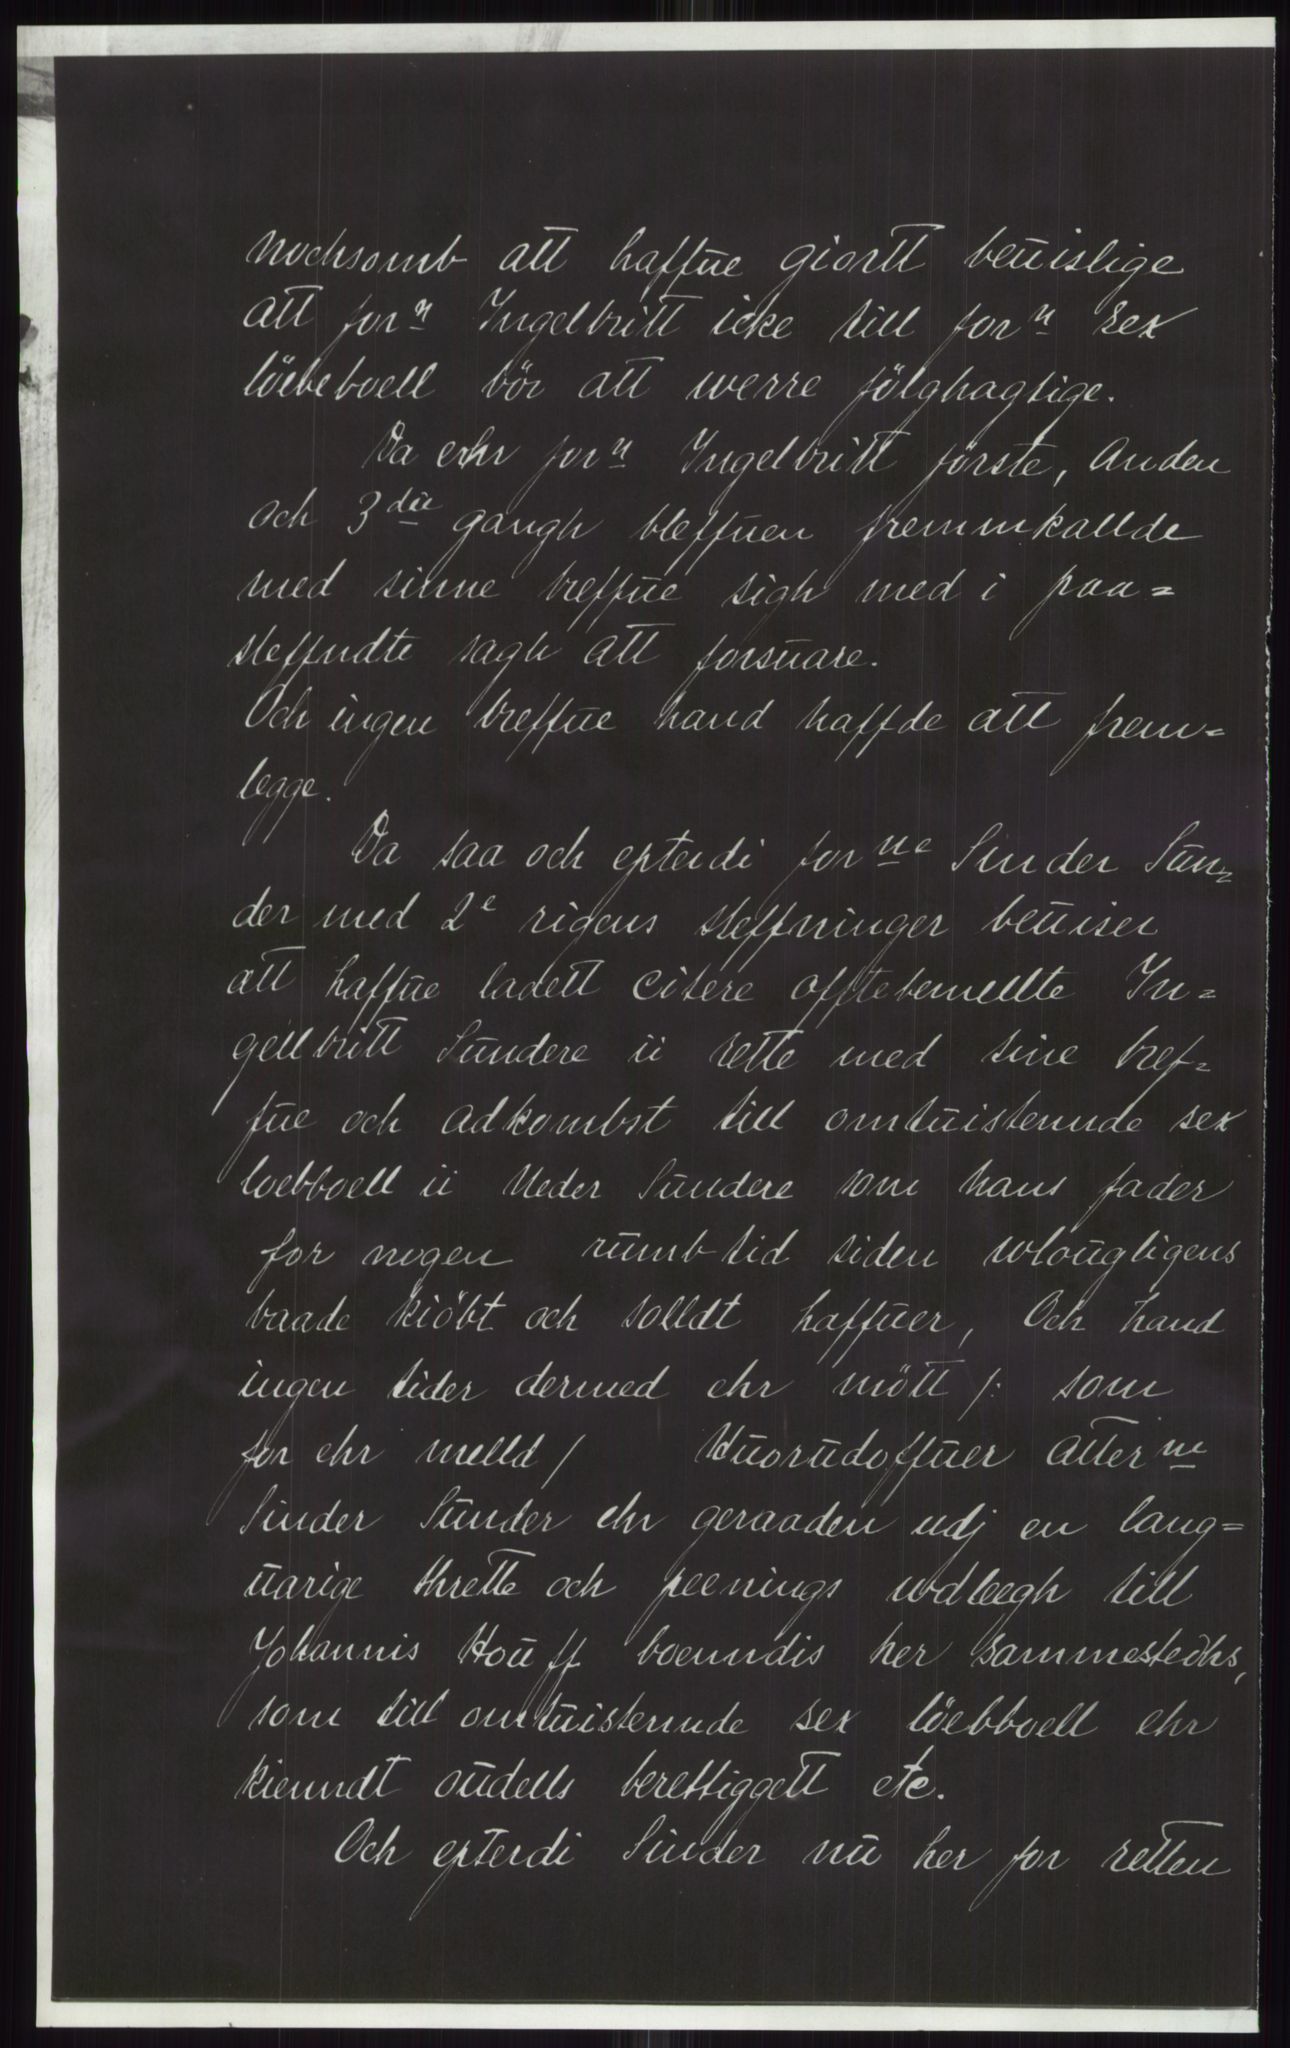 nochsomb att haffue giortt beuislige
att forn Ingelbritt icke till forn sex
löebeboell bör att werre fölghagtige.
Da ehr forn Ingelbritt förste, Anden
och 3die gangh bleffuen fremmkallde
med sinne breffue sigh med i paa=
steffndte sagh att forsuare.
Och ingen breffue hand haffde att frem=
legge.
Da saa och epterdi forne Sinder Sun=
der med 2e rigens steffninger beuiser
att haffue ladett citere offtebemellte In=
gellbritt Sundere ü rette med sine bref=
fue och adkombst till omtuistennde sex
loebboell ü Neder Sundere som hans fader
for nogen rumb tid siden wlougligens
baade kiöbt och solldt haffuer, Och hand
ingen tider dermed ehr mött /: som
for ehr melld / Huorudoffuer Atterne
Sinder Sunder ehr geraaden udj en lang=
uarige thrette och peenings wdlegh till
Johannis Houff boenndis her sammestedhs,
som till omtuistennde sex löebboell ehr
kienndt oudells berettiggett etc.
Och epterdi Sinder nu her for retten